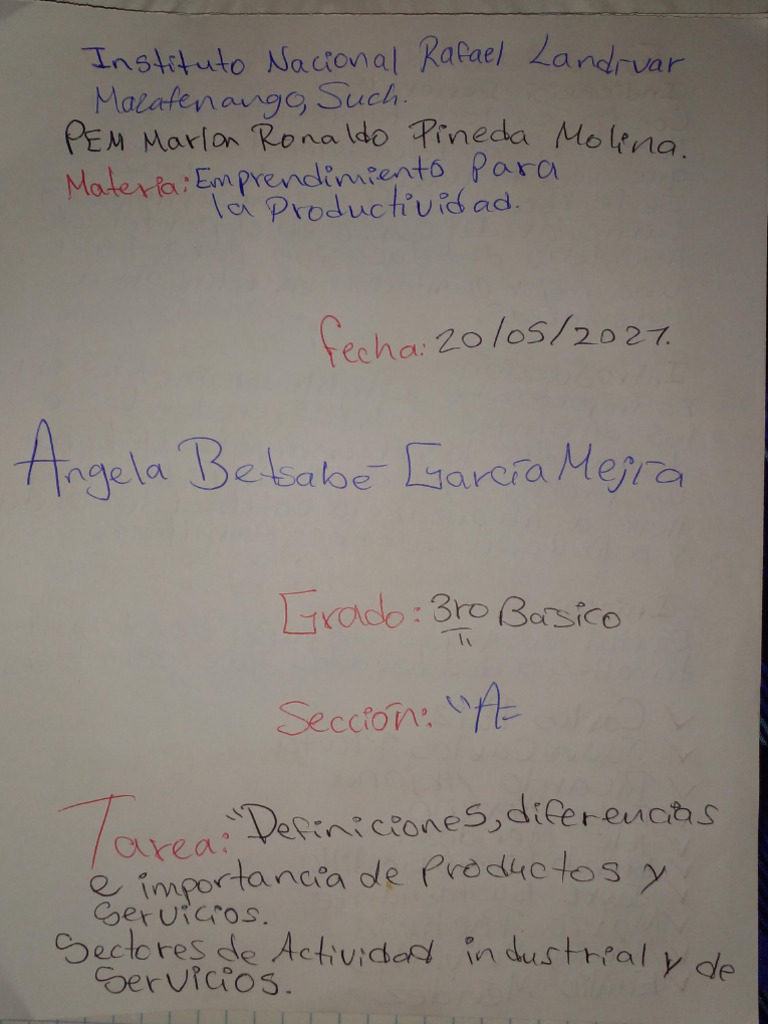 Instituto Nacional Rafael Landivar
Mazatenango, Such.
PEM Marlon Ronaldo Pineda Molina.
Materia: Emprendimiento Para
la Productividad.
Fecha: 20/05/2021.
Angela Betsabé García Mejía
Grado: 3ro Básico
Sección: "A"
Tarea: "Definiciones, diferencias
e importancia de Productos y
Servicios.
Sectores de Actividad industrial y de
Servicios.